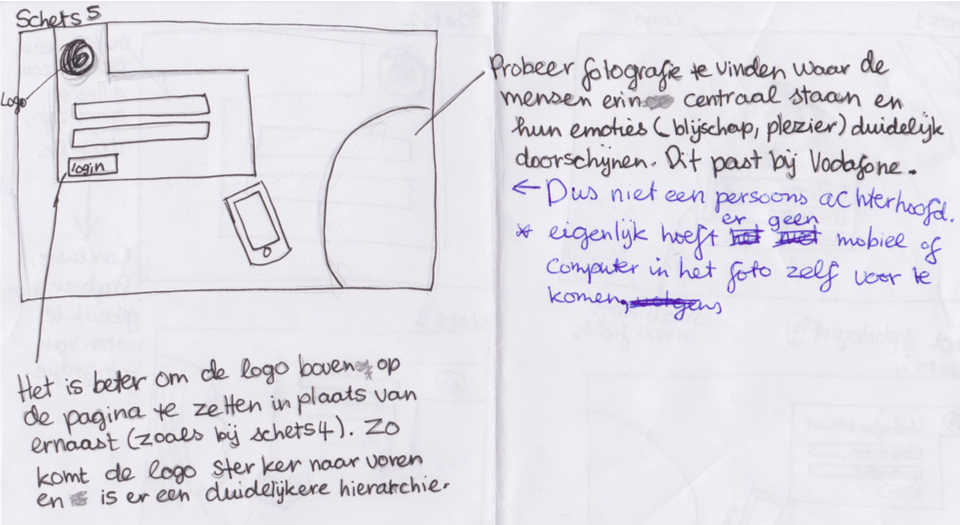 Schets 5
Logo
login
Het is beter om de logo boven op
de pagina te zetten in plaats van
ernaast (zoals bij schets 4). Zo
komt de logo sterker naar voren
en is er een duidelijkere hierarchie.
Probeer fotografie te vinden waar de
mensen erin centraal staan en
hun emoties (blijschap, plezier) duidelijk
doorschijnen. Dit past bij Vodafone.
← Dus niet een persoons achterhoofd.
* eigenlijk hoeft er geen mobiel of
computer in het foto zelf voor te
komen,